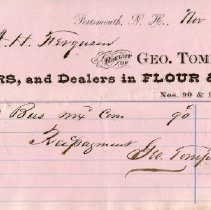 Portsmouth, N. H., Nov
H. Ferguson
Bought of GEO. TOMP
RS, and Dealers in FLOUR &
Nos. 90 & 9
Bus mx Corn 90
Recpayment
Geo. Tomp